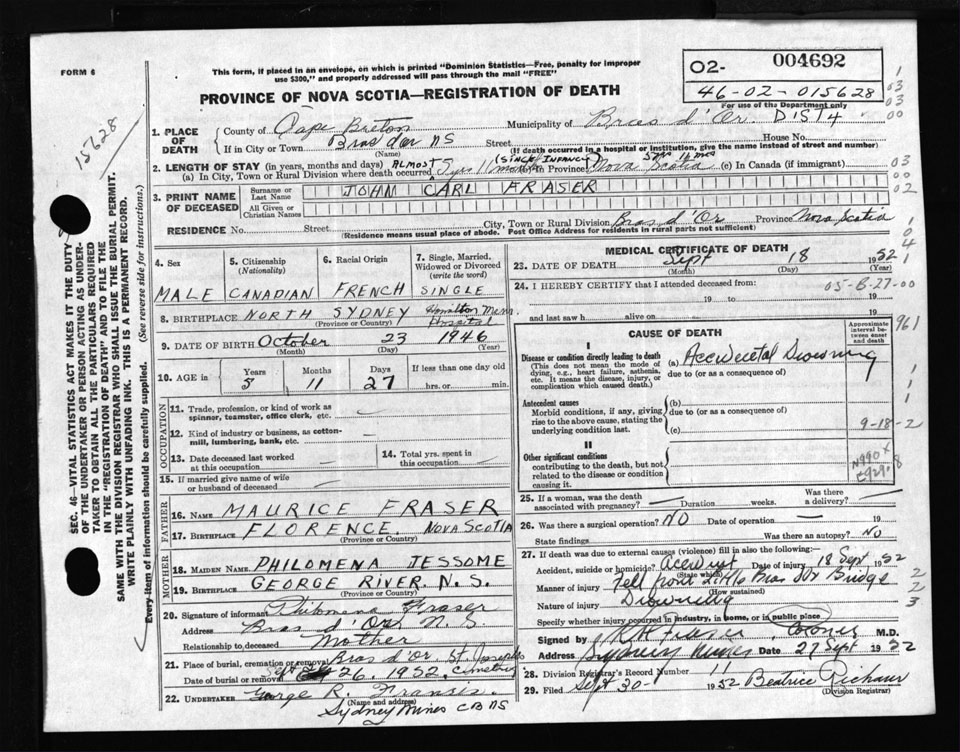 FORM 6
15628
This form, if placed in an envelope, on which is printed "Dominion Statistics—Free, penalty for improper
use $300," and properly addressed will pass through the mail "FREE"
O2- 004692
46-02-015628
For use of the Department only
PROVINCE OF NOVA SCOTIA—REGISTRATION OF DEATH
1. PLACE OF DEATH
County of Cape Breton Municipality of Bras d'Or. DIST 4
If in City or Town Bras d'or NS Street House No.
(Name) (If death occurred in a hospital or institution, give the name instead of street and number)
2. LENGTH OF STAY (in years, months and days) ALMOST (SINCE INFANCY)
(a) In City, Town or Rural Division where death occurred 5 yrs 11 months (b) In Province Nova Scotia (c) In Canada (if immigrant)
3. PRINT NAME OF DECEASED
Surname or Last Name
JOHN CARL FRASER
All Given or Christian Names
RESIDENCE No. Street City, Town or Rural Division Bras d'Or Province Nova Scotia
(Residence means usual place of abode. Post Office Address for residents in rural parts not sufficient)
4. Sex MALE
5. Citizenship (Nationality) CANADIAN
6. Racial Origin FRENCH
7. Single, Married, Widowed or Divorced (write the word) SINGLE
8. BIRTHPLACE NORTH SYDNEY Hamilton Mem. Hospital
(Province or Country)
9. DATE OF BIRTH October 23 1946
(Month) (Day) (Year)
10. AGE in Years 5 Months 11 Days 27 If less than one day old hrs. or min.
OCCUPATION
11. Trade, profession, or kind of work as spinner, teamster, office clerk, etc. —
12. Kind of industry or business, as cotton-mill, lumbering, bank, etc. —
13. Date deceased last worked at this occupation —
14. Total yrs. spent in this occupation —
15. If married give name of wife or husband of deceased
FATHER
16. NAME MAURICE FRASER
17. BIRTHPLACE FLORENCE. NOVA SCOTIA
(Province or Country)
MOTHER
18. MAIDEN NAME PHILOMENA JESSOME
19. BIRTHPLACE GEORGE RIVER. N.S.
(Province or Country)
20. Signature of informant Philomena Fraser
Address Bras d'Or, N.S.
Relationship to deceased Mother
21. Place of burial, cremation or removal Bras d'Or St. Joseph's Cemetery
Date of burial or removal Sept 26, 1952.
22. UNDERTAKER George R. Fransis.
(Name and address)
Sydney Mines CB NS
MEDICAL CERTIFICATE OF DEATH
23. DATE OF DEATH Sept 18 1952
(Month) (Day) (Year)
24. I HEREBY CERTIFY that I attended deceased from:
05-6-27-00
19 to 19
and last saw h alive on 19
961
CAUSE OF DEATH
Approximate interval between onset and death
I
Disease or condition directly leading to death
(This does not mean the mode of dying, e.g., heart failure, asthenia, etc. It means the disease, injury, or complication which caused death.)
(a) Accidental Drowning
due to (or as a consequence of)
Antecedent causes
Morbid conditions, if any, giving rise to the above cause, stating the underlying condition last.
(b)
due to (or as a consequence of)
(c)
9-18-2
II
Other significant conditions
contributing to the death, but not related to the disease or condition causing it.
N990 X
E929.8
25. If a woman, was the death associated with pregnancy? — Duration weeks. Was there a delivery? —
26. Was there a surgical operation? NO Date of operation — 19
State findings Was there an autopsy? No
27. If death was due to external causes (violence) fill in also the following:
Accident, suicide or homicide? Accident Date of injury 18 Sept 1952
(State which)
Manner of injury Fell from Bras d'Or Bridge
(How sustained)
Nature of injury Drowning
Specify whether injury occurred in industry, in home, or in public place
Signed by Coroner M.D.
Address Sydney Mines Date 27 Sept 1952
28. Division Registrar's Record Number 11
29. Filed Sept 30 - 1952 Beatrice
(Division Registrar)
SEC. 46—VITAL STATISTICS ACT MAKES IT THE DUTY
OF THE UNDERTAKER OR PERSON ACTING AS UNDER-
TAKER TO OBTAIN ALL THE PARTICULARS REQUIRED
IN THE "REGISTRATION OF DEATH" AND TO FILE THE
SAME WITH THE DIVISION REGISTRAR WHO SHALL ISSUE THE BURIAL PERMIT.
WRITE PLAINLY WITH UNFADING INK. THIS IS A PERMANENT RECORD.
Every item of information should be carefully supplied. (See reverse side for instructions.)